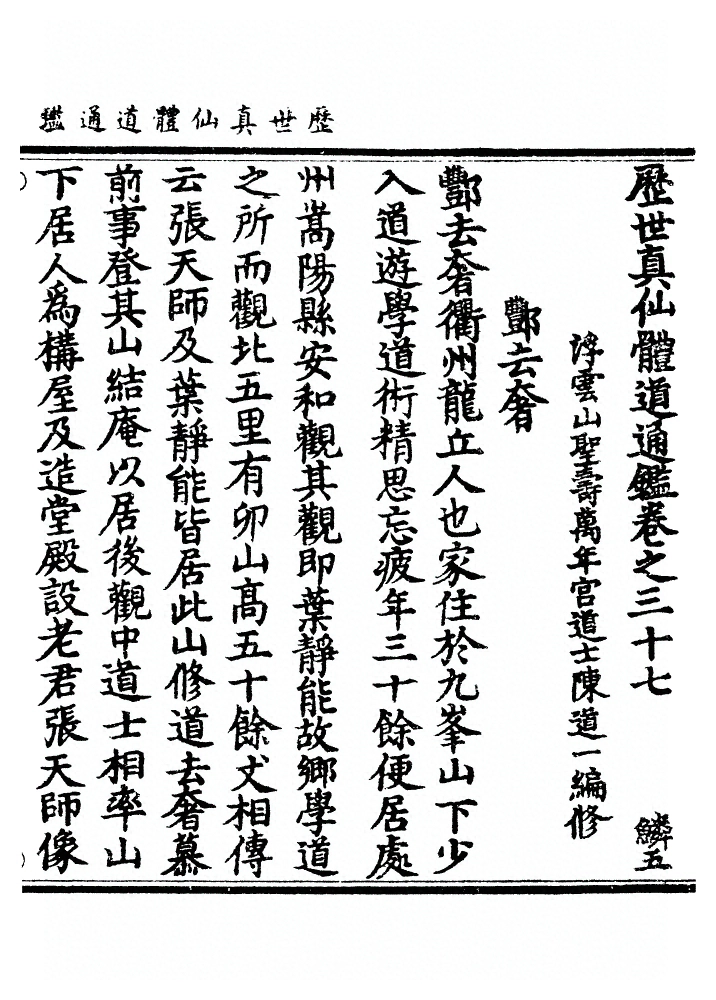 歷世真仙體道通鑑
歷世真仙體道通鑑卷之三十七 鱗五
浮雲山聖壽萬年宮道士陳道一編修
酆去奢
酆去奢衢州龍丘人也家住於九峯山下少
入道遊學道術精思忘疲年三十餘便居處
州嵩陽縣安和觀其觀即葉靜能故鄉學道
之所而觀北五里有卯山高五十餘丈相傳
云張天師及葉靜能皆居此山修道去奢慕
前事登其山結庵以居後觀中道士相率山
下居人為構屋及造堂殿設老君張天師像